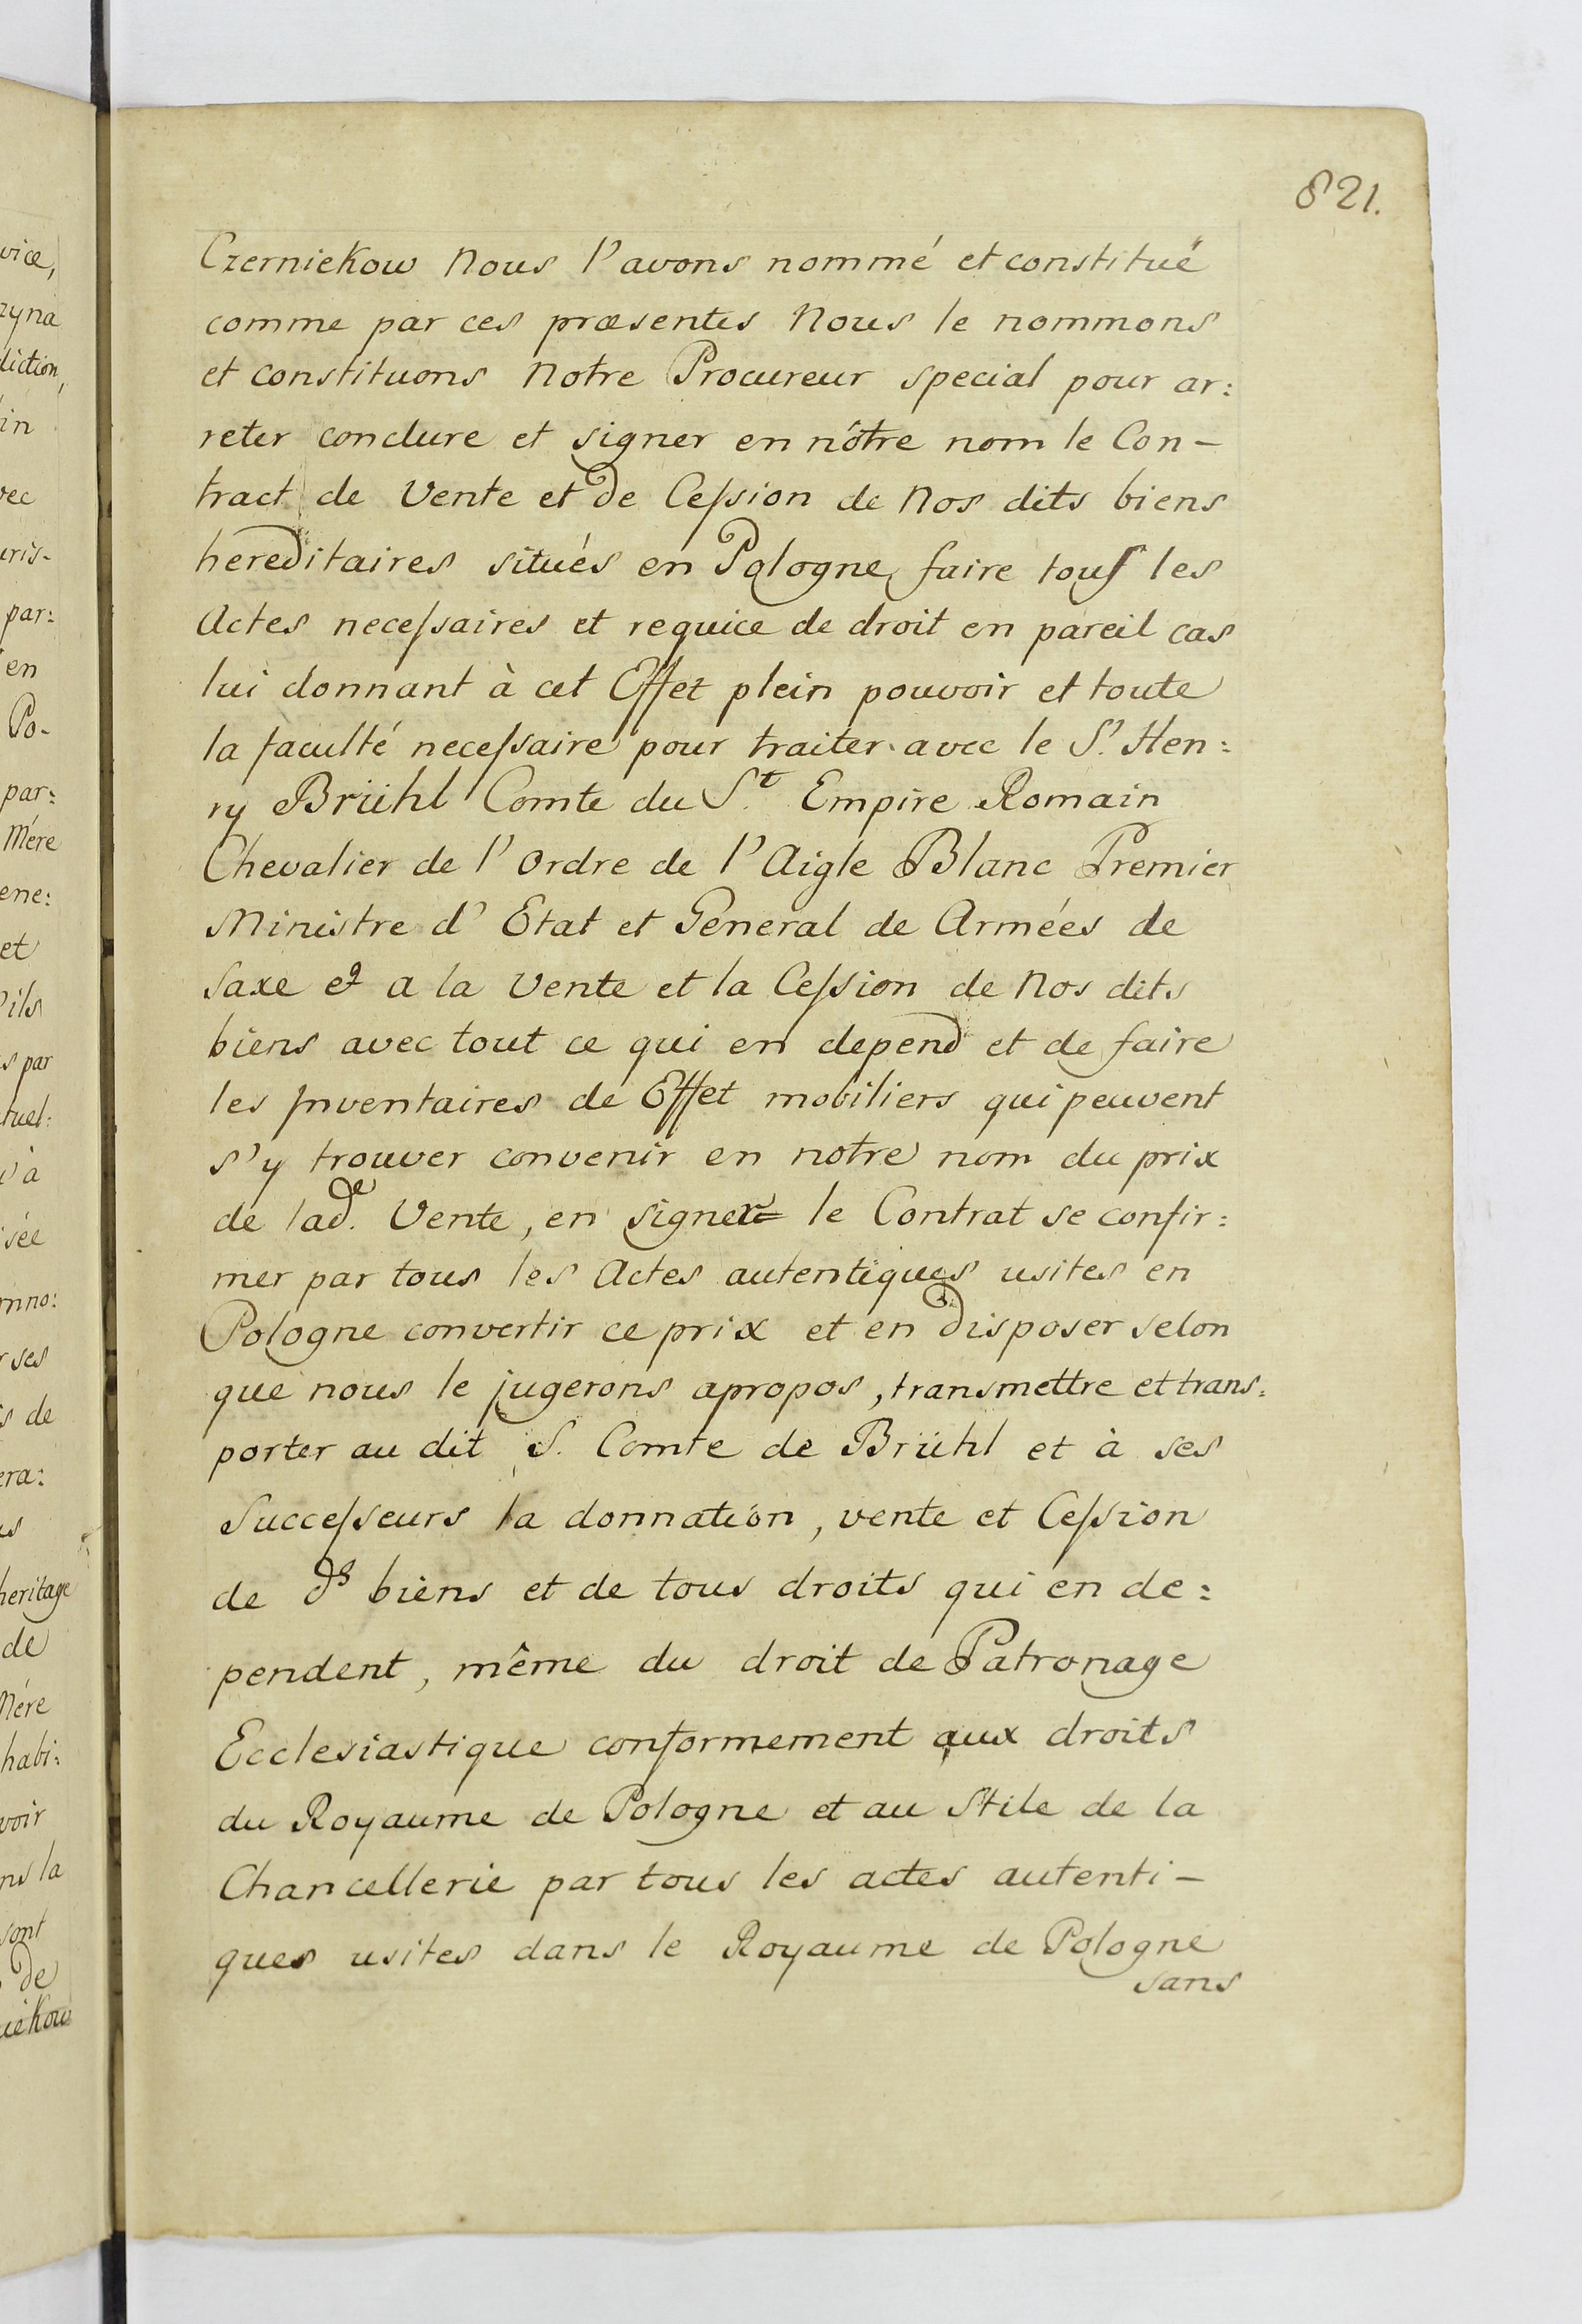 821.
Czerniekow Nous l'avons nommé et constitué
comme par ces præsentes Nous le nommons
et constituons Notre Procureur special pour ar:
reter conclure et signer en nôtre nom le Con-
tract de Vente et de Ceſsion de Nos dits biens
hereditaires situés en Pologne, faire touſ les
Actes neceſsaires et requice de droit en pareil cas
lui donnant à cet Effet plein pouvoir et toute
la faculté neceſsaire pour traiter avec le S.r Hen:
ry Brühl Comte du S.t Empire Romain
Chevalier de l'Ordre de l'Aigle Blanc Premier
Ministre d'Etat et General de Armées de
Saxe & a la Vente et la Ceſsion de Nos dits
biens avec tout ce qui en depend et de faire
les Inventaires de Effet mobiliers qui peuvent
s'y trouver convenir en notre nom du prix
de lad.e Vente, en signer le Contrat se confir:
mer par tous les Actes autentiques usites en
Pologne convertir ce prix et en disposer selon
que nous le jugerons apropos, transmettre et trans:
porter au dit S. Comte de Brühl et à ses
Succeſseurs la donnation, vente et Ceſsion
de ds biens et de tous droits qui en de:
pendent, même du droit de Patronage
Ecclesiastique conformement aux droits
du Royaume de Pologne et au Stile de la
Chancellerie par tous les actes autenti-
ques usites dans le Royaume de Pologne
sans
vice,
zyna
diction,
in
vec
uris-
par:
en
Po-
par:
Mére
ene:
et
ils
s par
tuel:
à
sée
mno:
ses
s de
era:
heritage
de
Mére
habi:
voir
ns la
sont
de
iekow